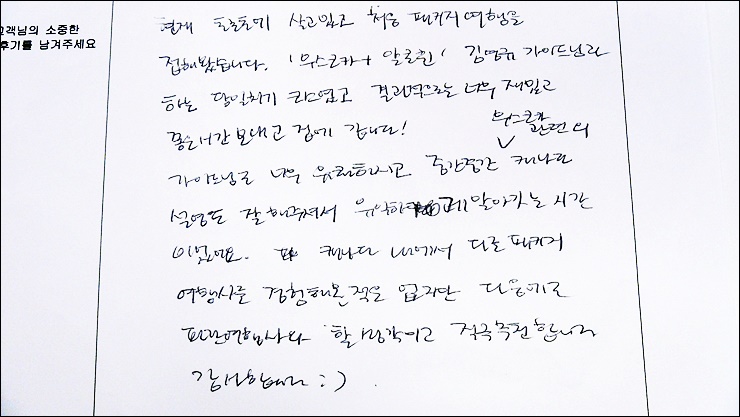 고객님의 소중한
후기를 남겨주세요
현재 토론토에 살고있고 처음 패키지여행을
접해봤습니다. '무스코카+알곤퀸' 김영규 가이드님과
하는 당일치기 코스였고 결과적으로는 너무 재밌고
좋은시간 보내고 집에 갑니다!
무스코카
가이드님도 너무 유쾌하시고 중간중간 캐나다 관련의
설명도 잘해주셔서 유익하게 알아가는 시간
이었어요. 캐나다 내에서 다른 패키지
여행사를 경험해본적은 없지만 다음에도
파란여행사와 할 생각이고 적극추천합니다
감사합니다 :)